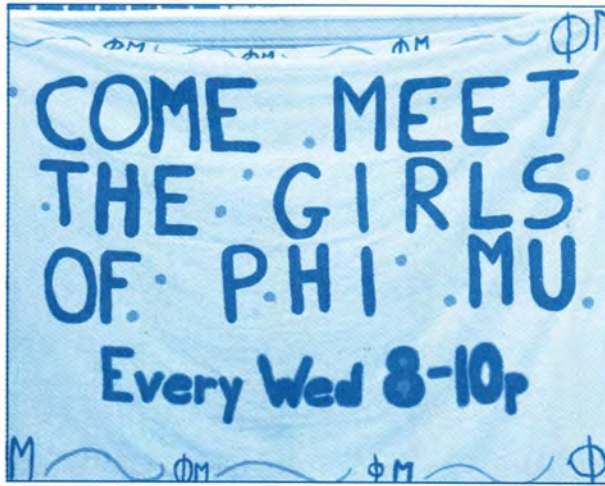 ΦM ΦM ΦM ΦM
COME MEET
THE GIRLS
OF PHI MU
Every Wed 8-10p
M ΦM ΦM Φ